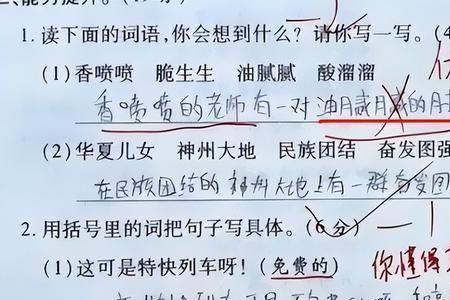 二、能力提升。
1. 读下面的词语,你会想到什么?请你写一写。(4
(1)香喷喷 脆生生 油腻腻 酸溜溜
香喷喷的老师有一对油月贰月贰的月
(2)华夏儿女 神州大地 民族团结 奋发图强
在民族团结的神州大地上有一群奋发图
2. 用括号里的词把句子写具体。(6分) —1
(1)这可是特快列车呀!(免费的) 你懂得